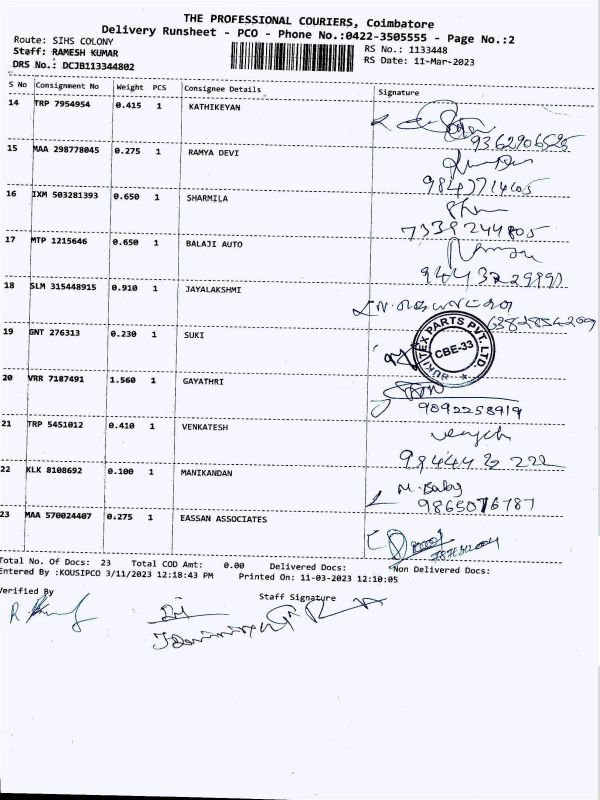 THE PROFESSIONAL COURIERS, Coimbatore
Delivery Runsheet - PCO - Phone No.:0422-3505555 - Page No.:2
Route: SIHS COLONY
RS No.: 1133448
Staff: RAMESH KUMAR
RS Date: 11-Mar-2023
DRS No.: DCJB113344802
S No Consignment No Weight PCS Consignee Details Signature
14 TRP 7954954 0.415 1 KATHIKEYAN
9362906525
15 MAA 298778045 0.275 1 RAMYA DEVI
9842771465
16 IXM 503281393 0.650 1 SHARMILA
7339244805
17 MTP 1215646 0.650 1 BALAJI AUTO
18 SLM 315448915 0.910 1 JAYALAKSHMI
6382854209
19 GNT 276313 0.230 1 SUKI
SUKITEX PARTS PVT. LTD.
CBE-33
20 VRR 7187491 1.560 1 GAYATHRI
9092258919
21 TRP 5451012 0.410 1 VENKATESH
22 KLK 8108692 0.100 1 MANIKANDAN
M. Baby
9865076787
23 MAA 570024407 0.275 1 EASSAN ASSOCIATES
Total No. Of Docs: 23 Total COD Amt: 0.00 Delivered Docs: Non Delivered Docs:
Entered By :KOUSIPCO 3/11/2023 12:18:43 PM Printed On: 11-03-2023 12:10:05
Verified By Staff Signature